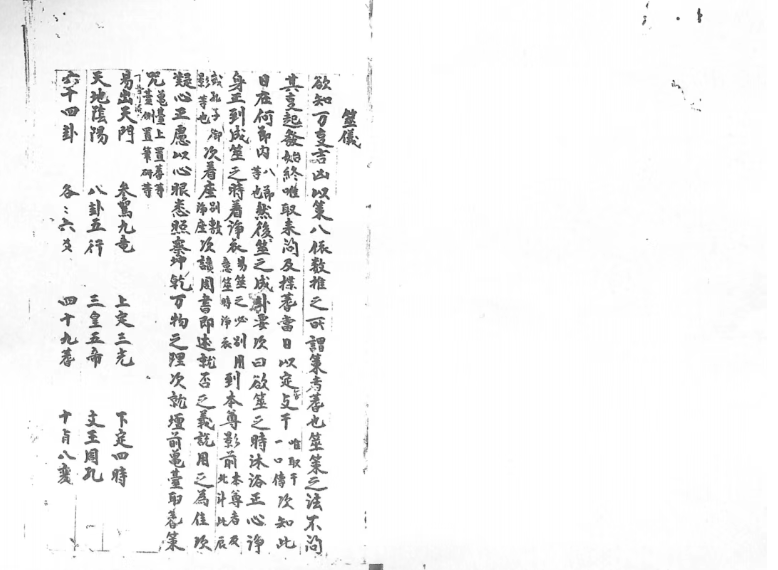 筮儀
欲知万事吉凶以策八依数推之所謂策者蓍也筮策之法不問
其事起發始終唯取来問及揲蓍當日以定支干唯取干一口傳次知此
日在何節内八節等也然後筮之成卦畢次曰欲筮之時沐浴正心浄
身正到成筮之時着浄衣易筮之必別用意筮時浄衣到本尊影前本尊者及北斗北辰
或孔子御影等也次着座別敷浄座次讀周書即述就否之義説用之為佳次
凝心正慮以心眼悉照察坤乾万物之理次就壇前亀臺取蓍策
亀臺上置蓍等臺側置筆硯等
咒
易出天門 參駕九竜 上定三光 下定四時
天地陰陽 八卦五行 三皇五帝 文王周孔
六十四卦 各〻六爻 四十九蓍 十有八變